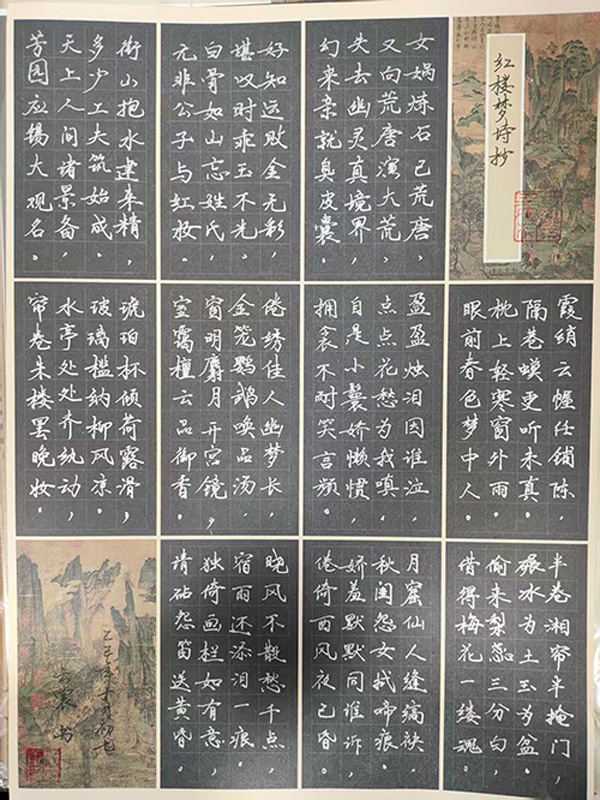 红楼梦诗抄
女娲炼石已荒唐，
又向荒唐演大荒。
失去幽灵真境界，
幻来亲就臭皮囊。
好知运败金无彩，
堪叹时乖玉不光。
白骨如山忘姓氏，
无非公子与红妆。
衔山抱水建来精，
多少工夫筑始成。
天上人间诸景备，
芳园应锡大观名。
霞绡云幄任铺陈，
隔巷蟆更听未真。
枕上轻寒窗外雨，
眼前春色梦中人。
盈盈烛泪因谁泣，
点点花愁为我嗔。
自是小鬟娇懒惯，
拥衾不耐笑言频。
倦绣佳人幽梦长，
金笼鹦鹉唤品汤，
窗明麝月开宫镜，
室霭檀云品御香。
琥珀杯倾荷露滑，
玻璃槛纳柳风凉。
水亭处处齐纨动，
帘卷朱楼罢晚妆。
半卷湘帘半掩门，
碾冰为土玉为盆。
偷来梨蕊三分白，
借得梅花一缕魂。
月窟仙人缝缟袂，
秋闺怨女拭啼痕。
娇羞默默同谁诉，
倦倚西风夜已昏。
晓风不散愁千点，
宿雨还添泪一痕。
独倚画栏如有意，
清砧怨笛送黄昏。
书